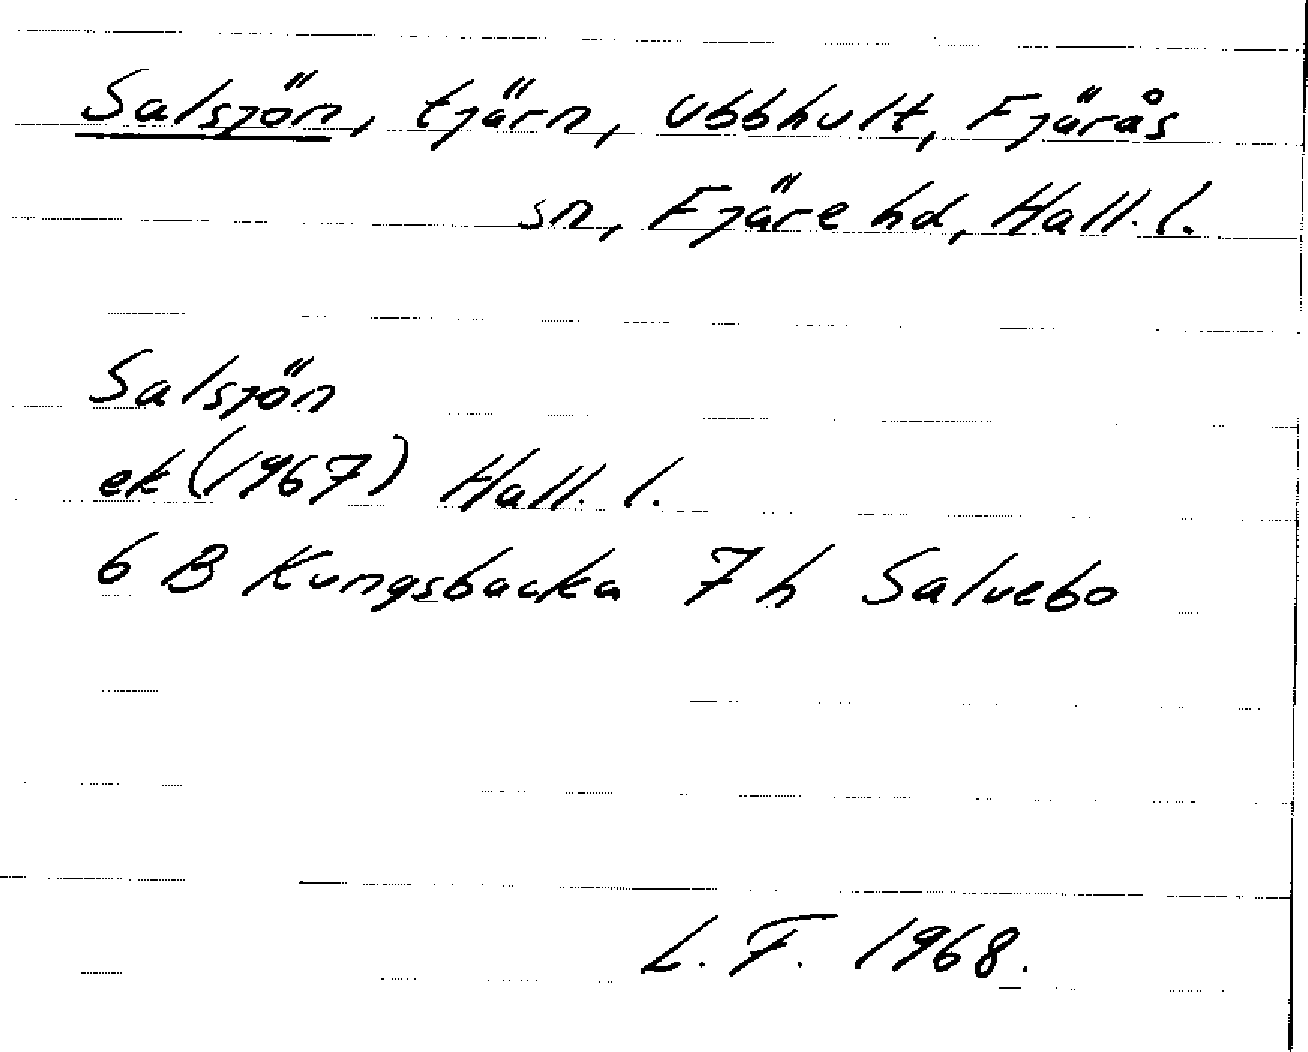 Salsjön, tjärn, Ubbhult, Fjärås
sn, Fjäre hd, Hall. l.
Salsjön
ek (1967) Hall. l.
6 B Kungsbacka 7 h Salvebo
L. F. 1968.